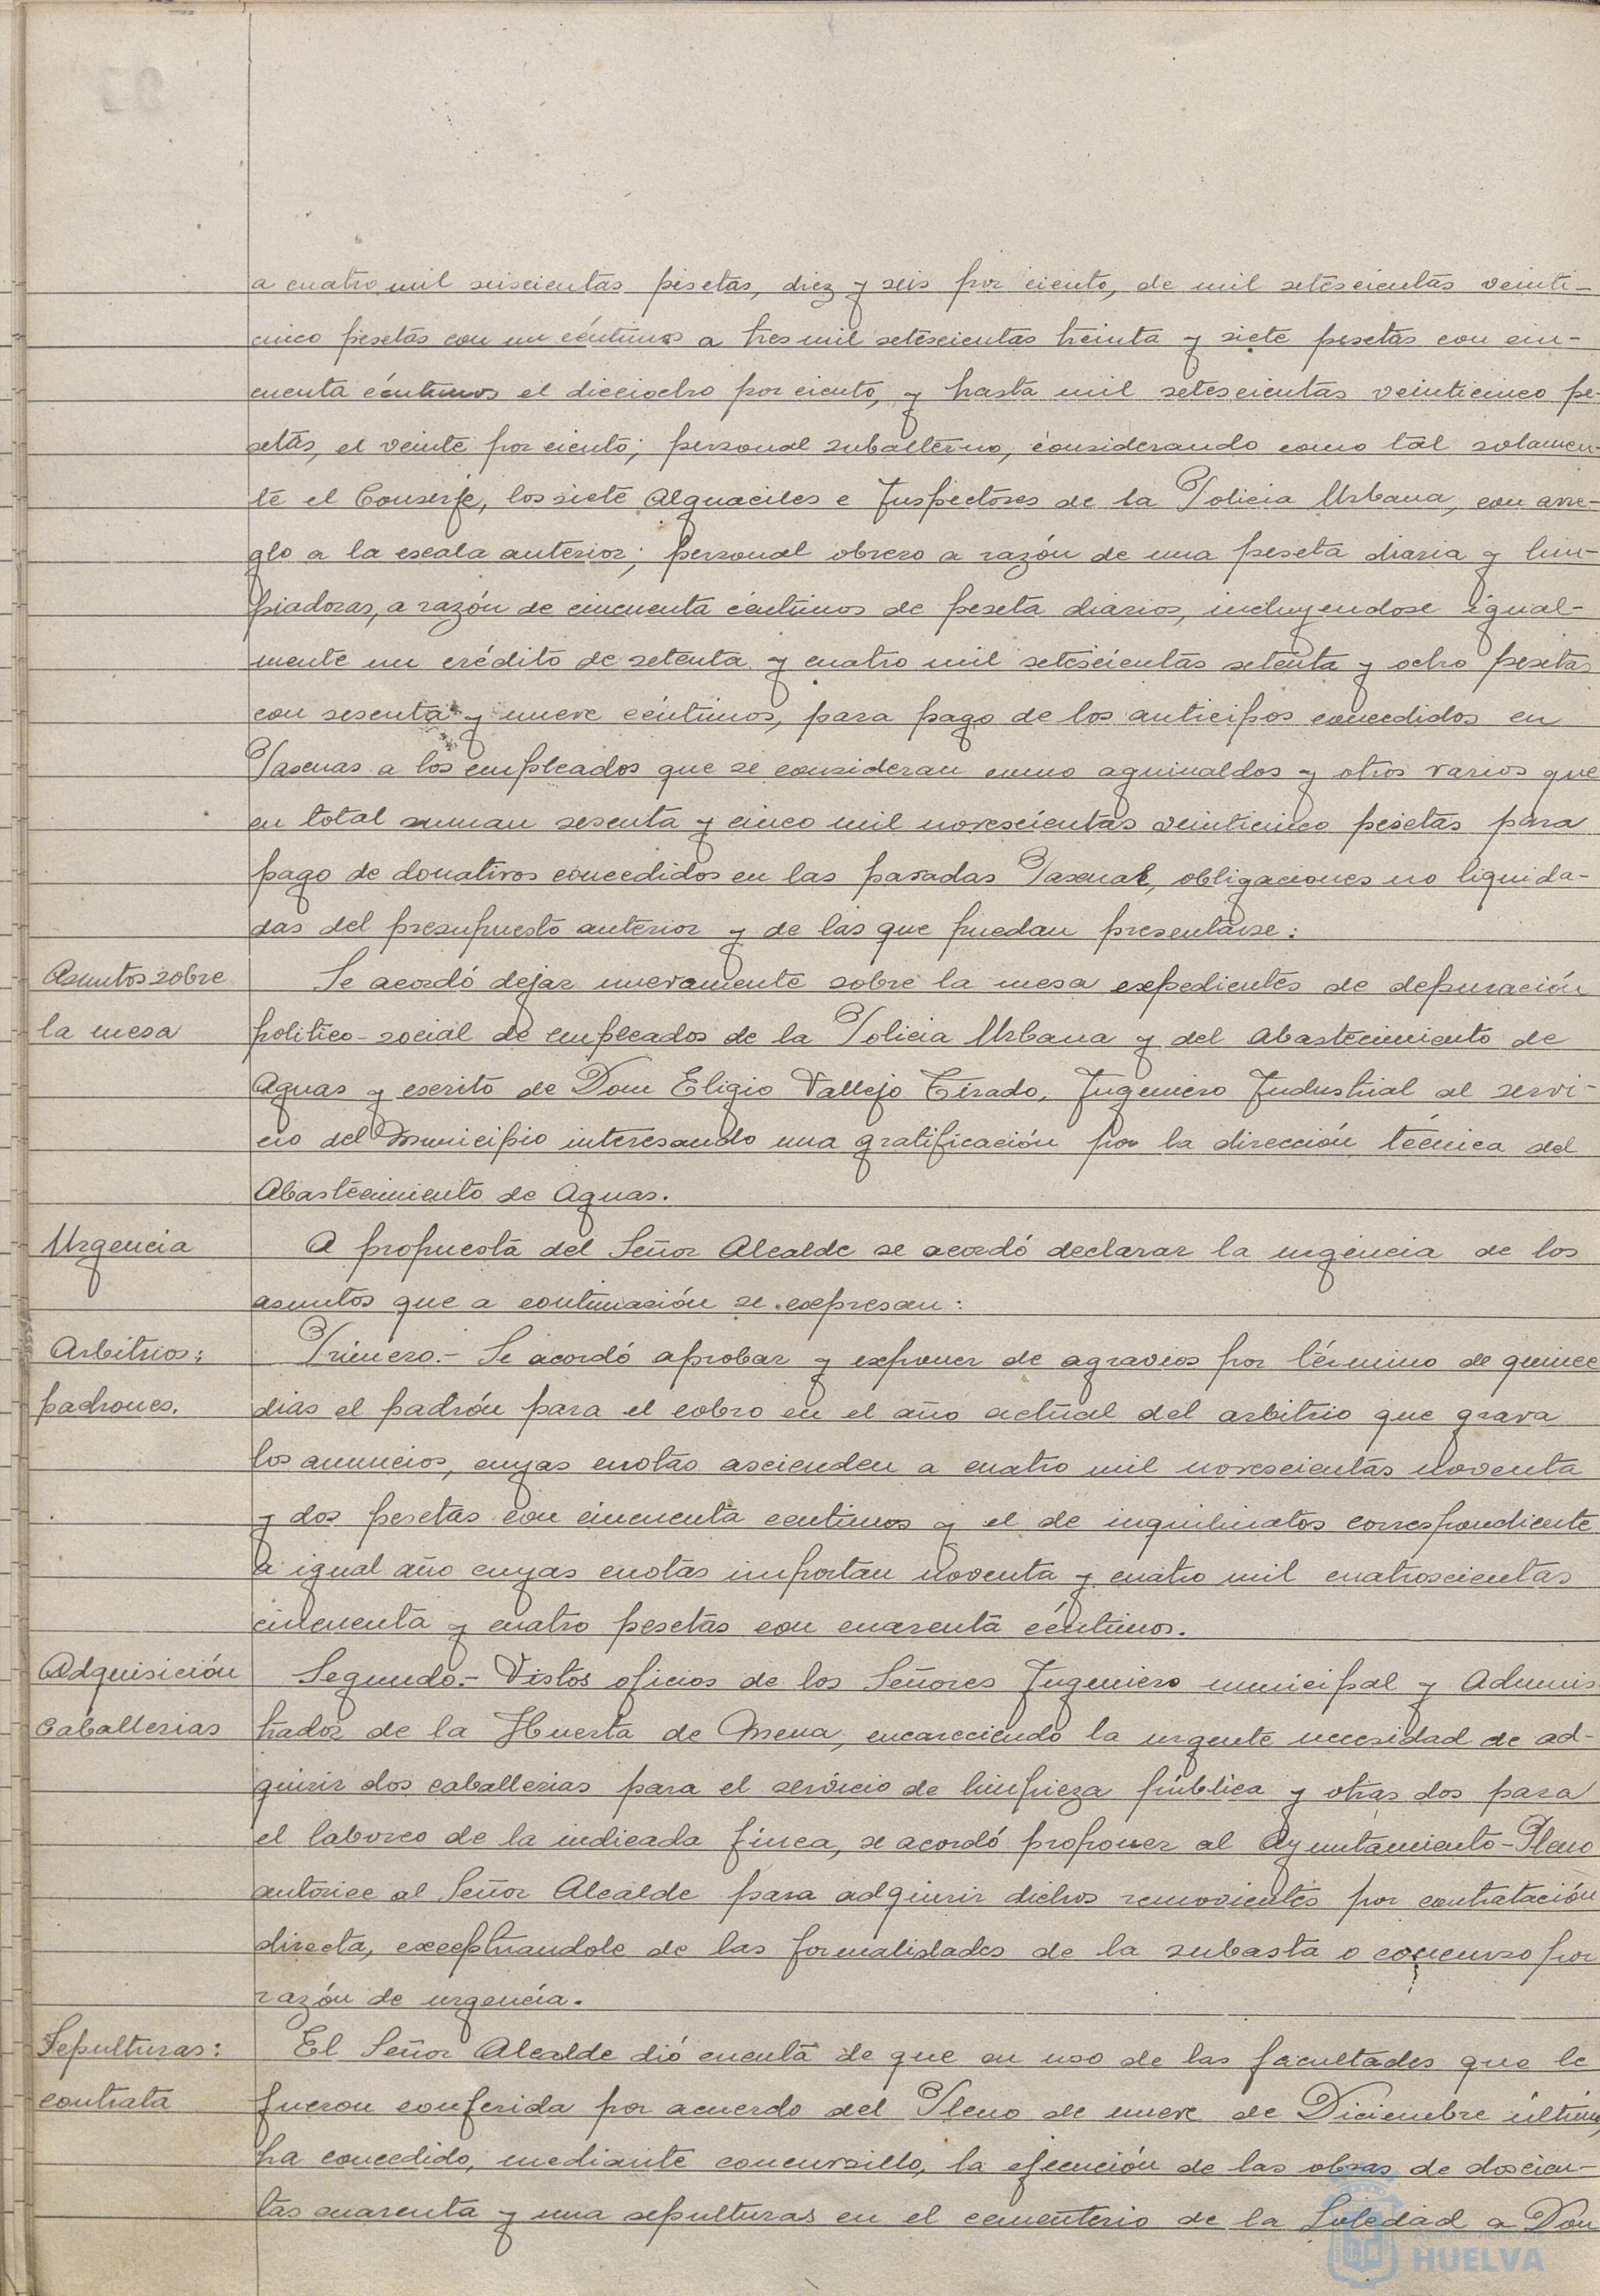 a cuatro mil seiscientas pesetas, diez y seis por ciento, de mil setescientas veinti-
cinco pesetas con un céntimos a tres mil setescientas treinta y siete pesetas con cin-
cuenta céntimos el dieciocho por ciento, y hasta mil setescientas veinticinco pe-
setas, el veinte por ciento; personal subalterno, considerando como tal solamen-
te el Conserje, los siete Alguaciles e Inspectores de la Policia Urbana, con arre-
glo a la escala anterior; personal obrero a razón de una peseta diaria y lim-
piadoras, a razón de cincuenta céntimos de peseta diarios, incluyendose igual-
mente un crédito de setenta y cuatro mil setescientas setenta y ocho pesetas
con sesenta y nueve céntimos, para pago de los anticipos concedidos en
Pascuas a los empleados que se consideran como aguinaldos y otros varios que
en total suman sesenta y cinco mil novescientas veinticinco pesetas para
pago de donativos concedidos en las pasadas Pascuas, obligaciones no liquida-
das del presupuesto anterior y de las que puedan presentarse:
Asuntos sobre
la mesa
Se acordó dejar nuevamente sobre la mesa expedientes de depuración
politico-social de empleados de la Policia Urbana y del Abastecimiento de
Aguas y escrito de Don Eligio Vallejo Tirado, Ingeniero Industrial al servi-
cio del Municipio interesando una gratificación por la dirección técnica del
Abastecimiento de Aguas.
Urgencia
A propuesta del Señor Alcalde se acordó declarar la urgencia de los
asuntos que a continuación se expresan:
Arbitrios:
padrones.
Primero.- Se acordó aprobar y exponer de agravios por término de quince
dias el padrón para el cobro en el año actual del arbitrio que grava
los anuncios, cuyas cuotas ascienden a cuatro mil novescientas noventa
y dos pesetas con cincuenta centimos y el de inquilinatos correspondiente
a igual año cuyas cuotas importan noventa y cuatro mil cuatroscientas
cincuenta y cuatro pesetas con cuarenta céntimos.
Adquisición
Caballerias
Segundo.- Vistos oficios de los Señores Ingeniero municipal y Adminis-
trador de la Huerta de Mena, encareciendo la urgente necesidad de ad-
quirir dos caballerias para el servicio de limpieza pública y otras dos para
el laboreo de la indicada finca, se acordó proponer al Ayuntamiento-Pleno
autorice al Señor Alcalde para adquirir dichos semovientes por contratación
directa, exceptuandole de las formalidades de la subasta o concurso por
razón de urgencia.
Sepulturas:
contrata
El Señor Alcalde dió cuenta de que en uso de las facultades que le
fueron conferida por acuerdo del Pleno de nueve de Diciembre último,
ha concedido, mediante concursillo, la ejecución de las obras de doscien-
tas cuarenta y una sepulturas en el cementerio de la Soledad a Don
HUELVA